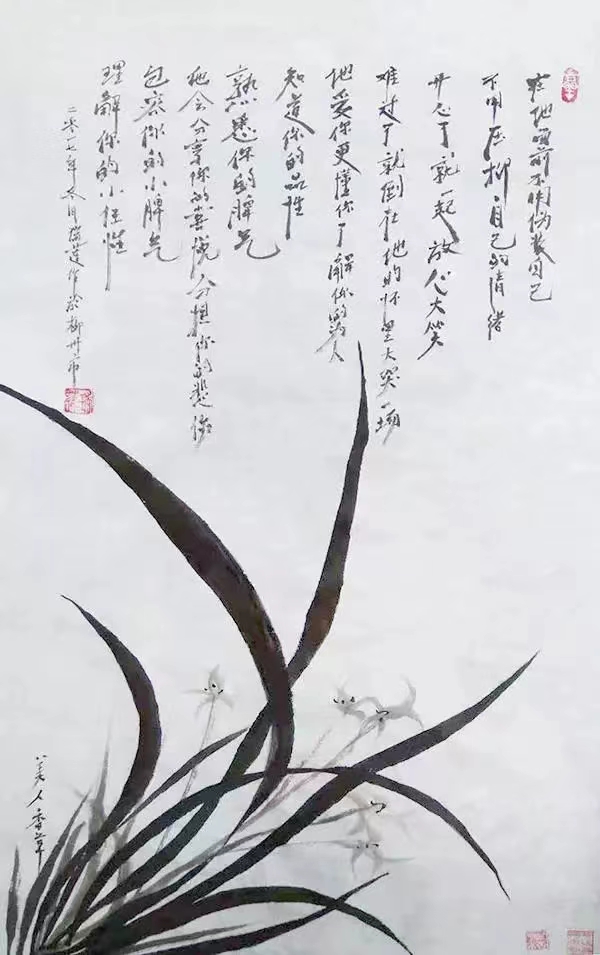 在他面前不用伪装自己
不用压抑自己的情绪
开心了就一起放心大笑
难过了就倒在他的怀里大哭一场
他爱你更懂你了解你的为人
知道你的品性
熟悉你的脾气
他会分享你的喜悦分担你的悲伤
包容你的小脾气
理解你的小任性
二零一七年冬月 作於柳州市
美人香草